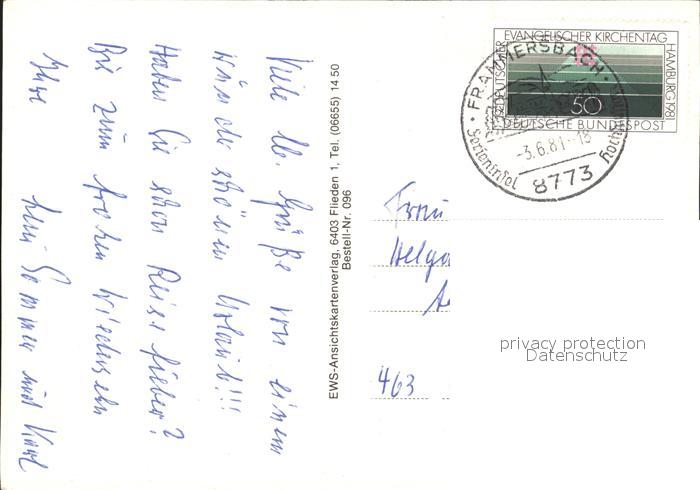 Viele lb. Grüße von einem
wunderschönen Urlaub!!!
Haben Sie schon Reisefieber?
Bis zum frohen Wiedersehn
Ihre
und Karl
EWS-Ansichtskartenverlag, 6403 Flieden 1, Tel. (06655) 14 50
Bestell-Nr. 096
DEUTSCHER EVANGELISCHER KIRCHENTAG HAMBURG 1981
50
DEUTSCHE BUNDESPOST
FRAMMERSBACH
Ferieninsel
-3.6.81-18
8773
Frau
Helga
463
privacy protection
Datenschutz